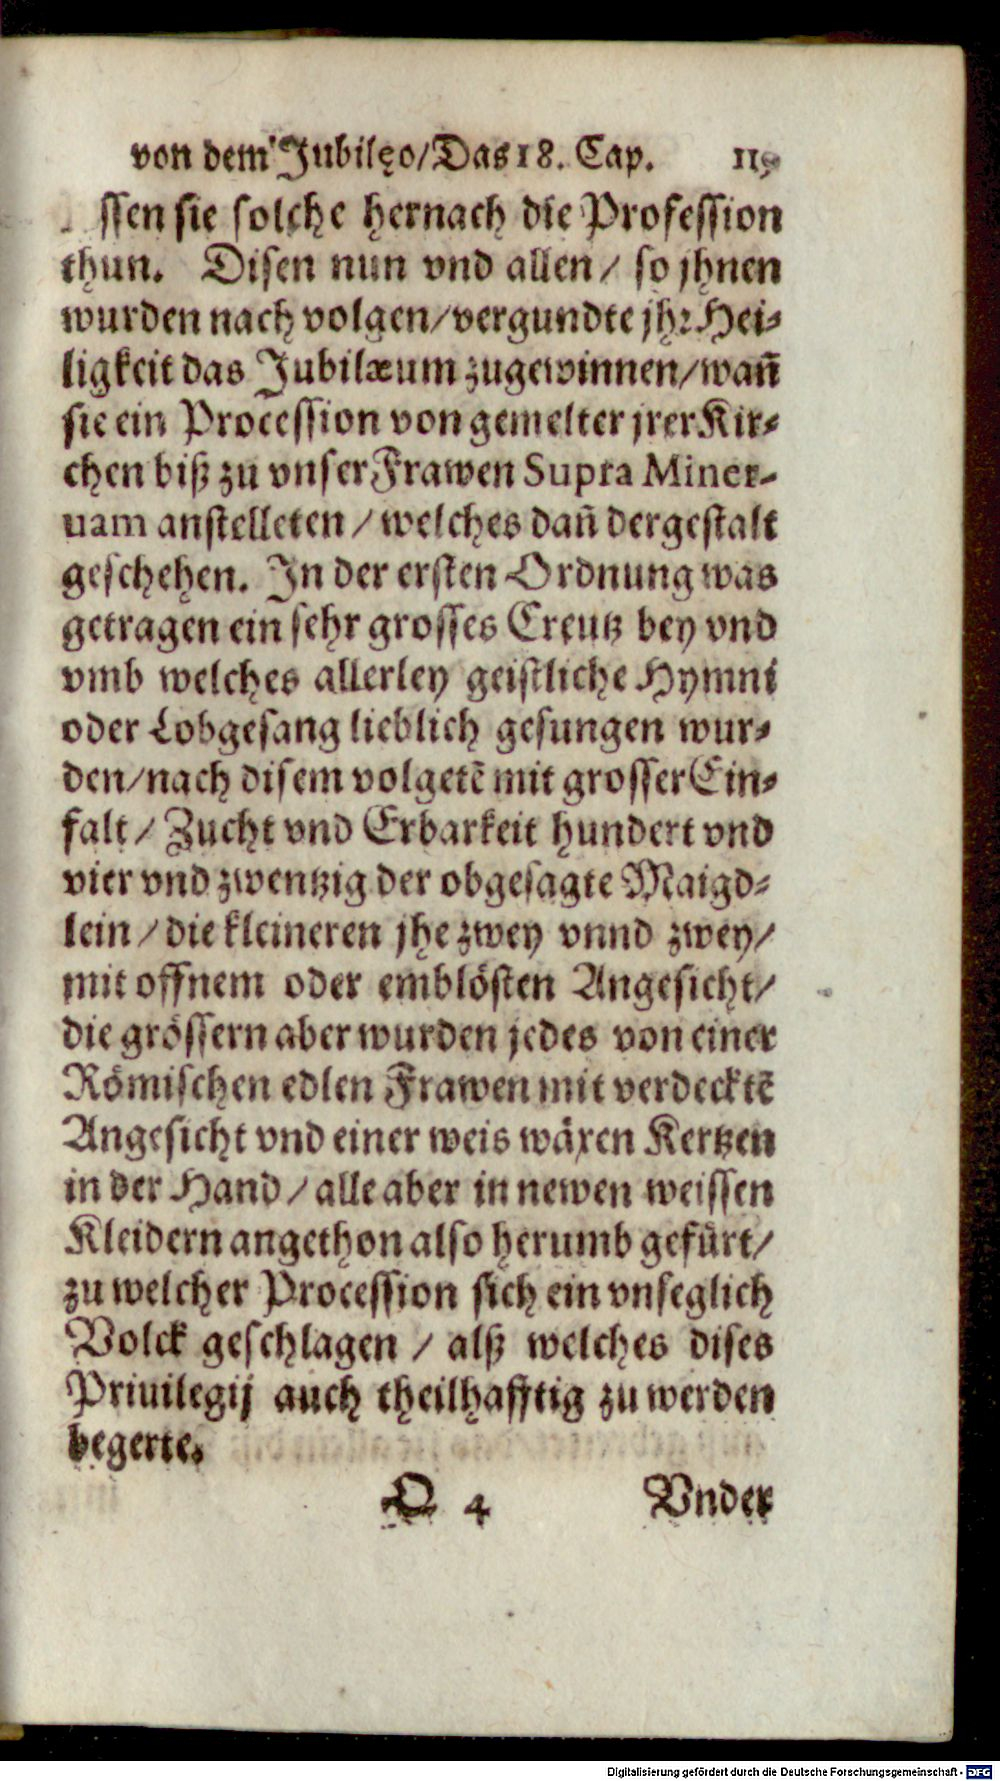 von dem Jubilęo/Das 18. Cap.
ssen sie solche hernach die Profession
thun. Disen nun vnd allen/ so jhnen
wurden nach volgen/vergundte jhr Hei-
ligkeit das Jubilæum zugewinnen/wañ
sie ein Procession von gemelter jrer Kir-
chen biß zu vnser Frawen Supra Miner-
uam anstelleten/welches dañ dergestalt
geschehen. In der ersten Ordnung was
getragen ein sehr grosses Creutz bey vnd
vmb welches allerley geistliche Hymni
oder Lobgesang lieblich gesungen wur-
den/nach disem volgetẽ mit grosser Ein-
falt/ Zucht vnd Erbarkeit hundert vnd
vier vnd zwentzig der obgesagte Maigd-
lein/die kleineren jhe zwey vnnd zwey/
mit offnem oder emblösten Angesicht/
die grössern aber wurden jedes von einer
Römischen edlen Frawen mit verdecktẽ
Angesicht vnd einer weis wäxen Kertzen
in der Hand/alle aber in newen weissen
Kleidern angethon also herumb gefürt/
zu welcher Procession sich ein vnseglich
Volck geschlagen/ alß welches dises
Priuilegij auch theilhafftig zu werden
begerte.
O 4 Vnder
Digitalisierung gefördert durch die Deutsche Forschungsgemeinschaft - DFG